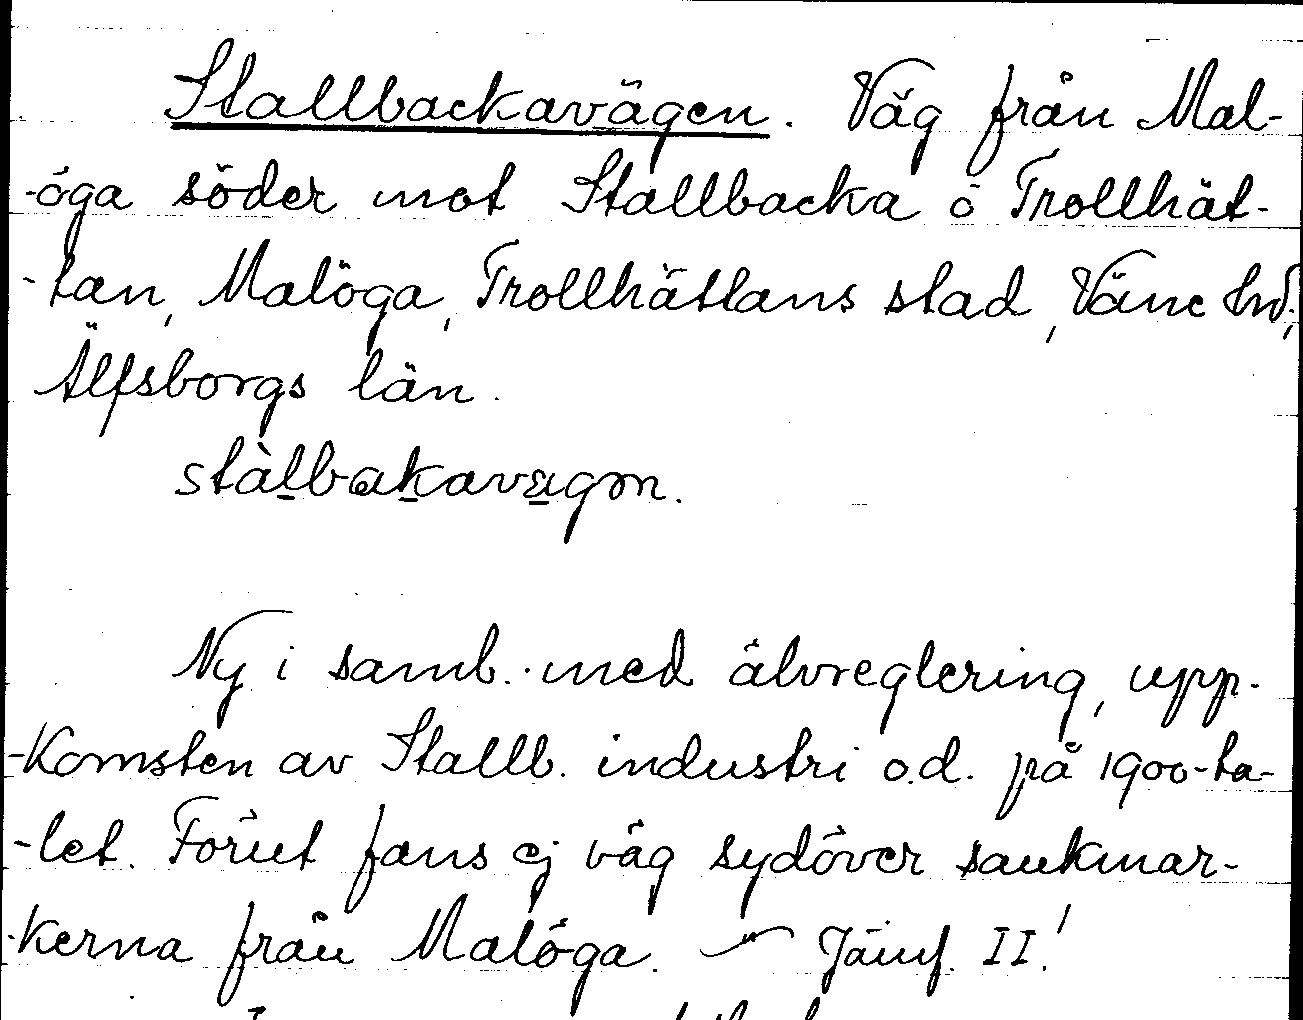 Stallbackavägen. Väg från Mal-
-öga söder mot Stallbacka ö Trollhät-
-tan, Malöga, Trollhättans stad, Väne hd,
Älfsborgs län.
stàlbakavägən.
Ny i samb. med älvreglering, upp-
-komsten av Stallb. industri o.d. på 1900-ta-
-let. Förut fans ej väg sydöver sankmar-
-kerna från Malöga. – Jämf. II!